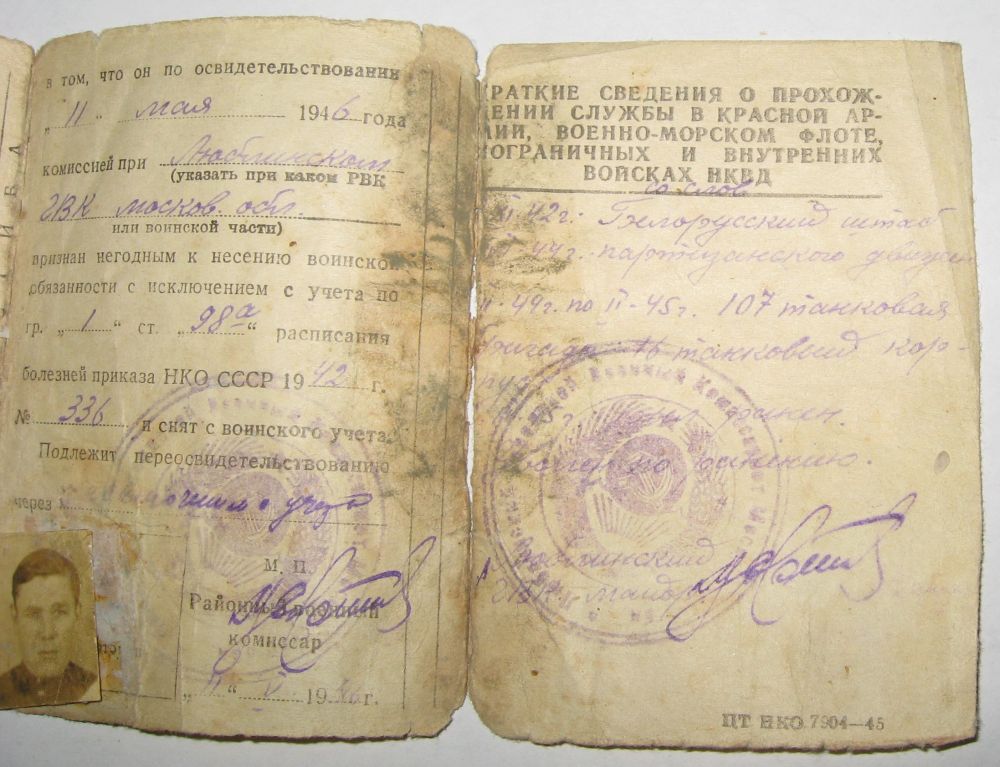 в том, что он по освидетельствовании
„11“ мая 1946 года
комиссией при Люблинском
(указать при каком РВК
ГВК москов. обл.
или воинской части)
признан негодным к несению воинской
обязанности с исключением с учета по
гр. „1“ ст. „98а“ расписания
болезней приказа НКО СССР 1942 г.
№ 336 и снят с воинского учета.
Подлежит переосвидетельствованию
через с учета
М. П.
Районный военный
комиссар
„11“ V 1946 г.
РАТКИЕ СВЕДЕНИЯ О ПРОХОЖ-
ЕНИИ СЛУЖБЫ В КРАСНОЙ АР-
МИИ, ВОЕННО-МОРСКОМ ФЛОТЕ,
ОГРАНИЧНЫХ И ВНУТРЕННИХ
ВОЙСКАХ НКВД
со слов
42г. Белорусский штаб
44г. партизанского движен
44г. по II-45г. 107 танковая
бригада 16 танковый кор-
пус
ранен.
по ранению.
Люблинский
майор
ПТ НКО 7904—45